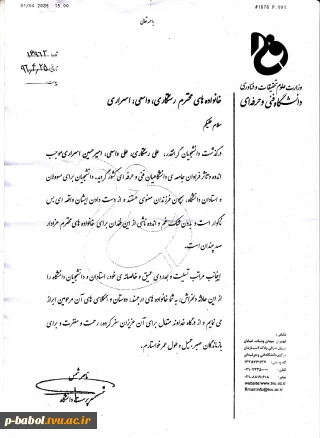 01/04 2038 15:00 #1676 P.001
باسمه تعالی
وزارت علوم تحقیقات و فناوری
دانشگاه فنی و حرفه ای
خانواده های محترم رستگاری، واسعی، اسراری
سلام علیکم
درگذشت دانشجویان گرانقدر، علی رستگاری، علی واسعی، امیرحسین اسراری موجب
اندوه و تاثر فراوان جامعه ی دانشگاهیان فنی و حرفه ای کشور گردید. دانشجویان برای مسوولان
و استادان دانشگاه، بچون فرزندان معنوی هستند و از دست دادن ایشان واقعه ای بس
ناگوار است و بدون شک غم و اندوه ناشی از این فقدان برای خانواده های محترم عزادار
صد چندان است.
اینجانب مراتب تسلیت و همدردی عمیق و خالصانه ی خود، استادان و دانشجویان دانشگاه را
از این حادثه دلخراش، به شما خانواده های ارجمند، دوستان و همکلاسی های آن مرحومین ابراز
می نمایم و از درگاه خداوند متعال برای آن عزیزان سفر کرده، رحمت و مغفرت و برای
بازماندگان صبر جمیل و طول عمر خواستارم.
سرپرست دانشگاه
www.tvu.ac.ir
p-babol.tvu.ac.ir